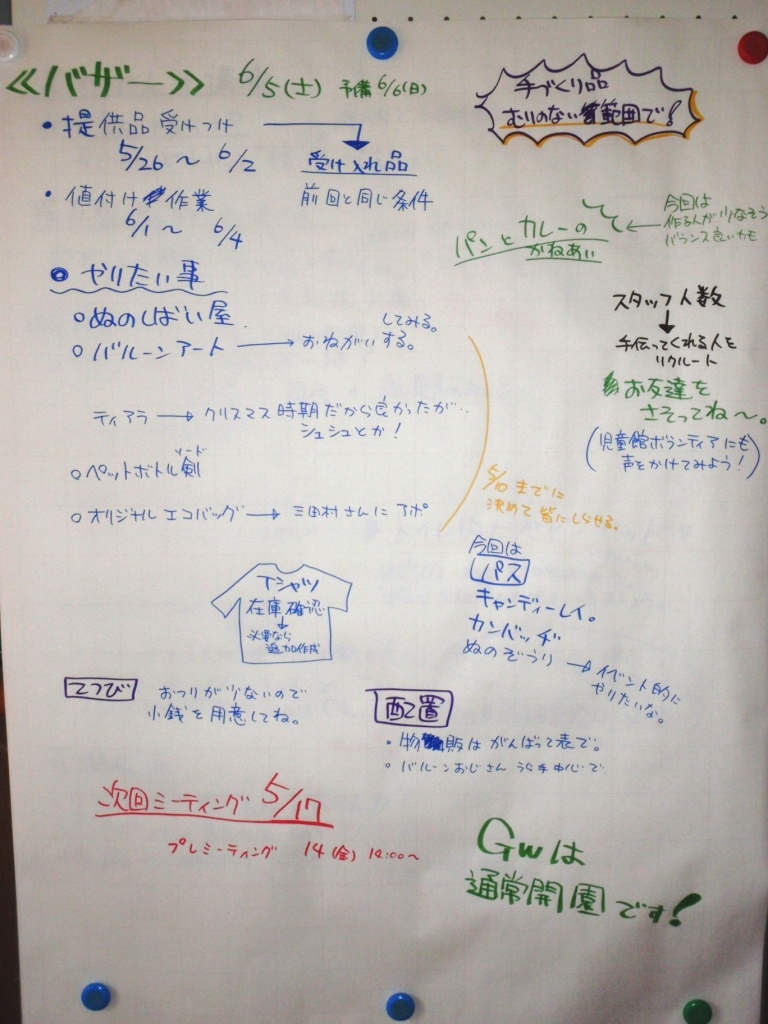 ≪バザー≫ 6/5(土) 予備 6/6(日)
手づくり品
むりのない範囲で!
・提供品受けつけ
5/26 〜 6/2
受け入れ品
前回と同じ条件
・値付け作業
6/1 〜 6/4
パンとカレーの
かねあい
今回は
作る人が少なそう
バランス良いかも
◎ やりたい事
○ぬのしばい屋
○バルーンアート → おねがいする。
してみる。
ティアラ → クリスマス時期だから良かったが‥
シュシュとか!
○ペットボトル剣
ソード
○オリジナルエコバッグ → 三田村さんにアポ
5/10までに
決めて皆にしらせる。
スタッフ人数
↓
手伝ってくれる人を
リクルート
お友達を
さそってね〜。
(児童館ボランティアにも
声をかけてみよう!)
Tシャツ
在庫確認
↓
必要なら
追加作成
今回は
パス
キャンディーレイ。
カンバッヂ
ぬのぞうり → イベント的に
やりたいな。
てつび
おつりが少ないので
小銭を用意してね。
配置
・物販はがんばって表で。
・バルーンおじさん うら手中心で
次回ミーティング 5/17
プレミーティング 14(金) 14:00〜
GWは
通常開園です!